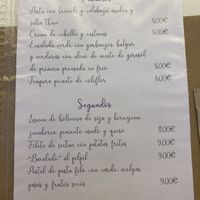 Pasta con brócoli y calabaza asados y
salsa thai 8.00€
Crema de cebolla y castañas 8.00€
Ensalada verde con garbanzos, bulgur
y verduras con alino de aceite de girasol
de primera prensada en frío 8.00€
Tempura picante de coliflor 8.00€
Segundos
Lasaña de boloñesa de soja y berenjena,
zanahoria pimiento asado y queso 8.00€
Filete de seitan con patatas fritas 9.00€
"Bacalado" al pilpil 9.00€
Pastel de pasta filo con cardo, acelgas
pasas y frutos secos 9.00€